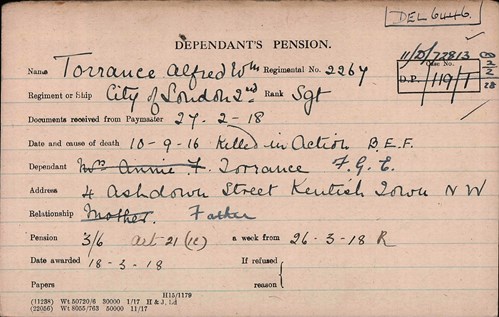 DEL 6446.
DEPENDANT'S PENSION.
11/D/72813
Name Torrance Alfred Wm Regimental No. 2267
Case No.
D.P. 119/T
Regiment or Ship City of London 2nd Rank Sgt
Documents received from Paymaster 27-2-18
Date and cause of death 10-9-16 Killed in Action B.E.F.
Dependant Mrs Annie F. Torrance F.G.E.
Address 4 Ashdown Street Kentish Town N W
Relationship Mother. Father
Pension 3/6 Art 21 (1c) a week from 26-3-18 R
Date awarded 18-3-18 If refused
Papers reason
H15/1179
(11238) Wt 50720/6 30000 1/17 H & J, Ld
(22056) Wt 8055/763 50000 11/17